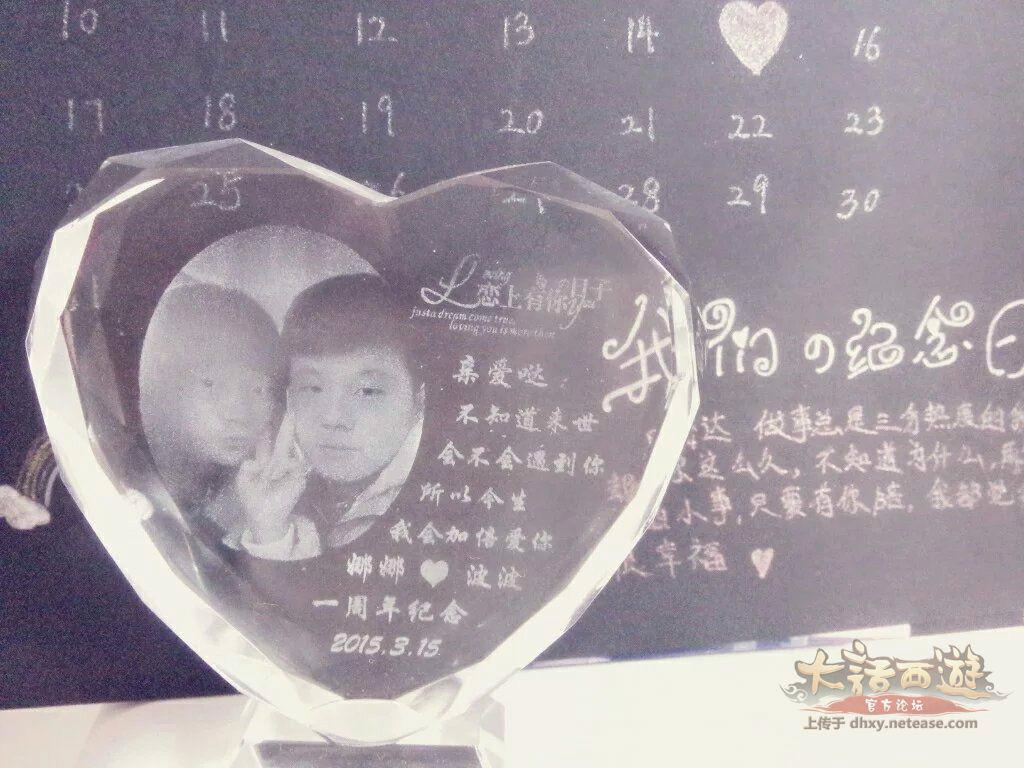 10 11 12 13 14 16
17 18 19 20 21 22 23
25 28 29 30
恋上有你的日子
just a dream come true,
loving you is more than
亲爱哒
不知道来世
会不会遇到你
所以今生
我会加倍爱你
娜娜 波波
一周年纪念
2015.3.15
我们的纪念日
达,做事总是三分热度的
这么久,不知道为什么,
小事,只要有你陪,
幸福
大话西遊
官方论坛
上传于 dhxy.netease.com